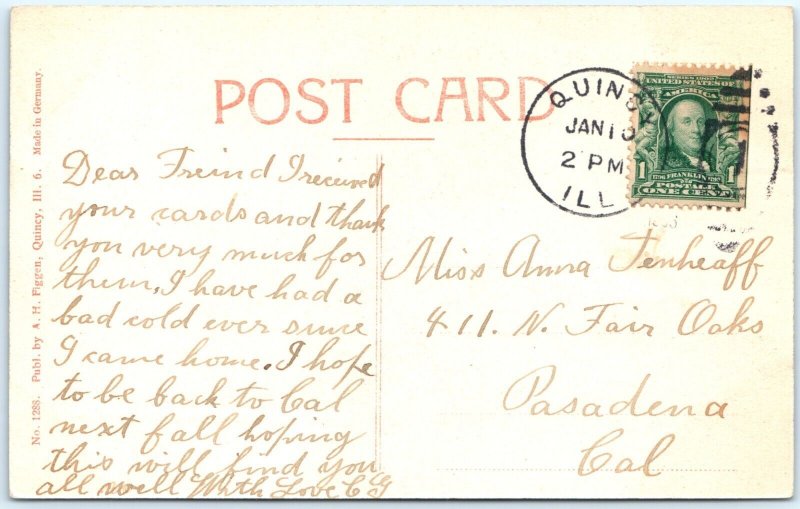 POST CARD
No. 1288. Publ. by A. H. Figgen, Quincy, Ill. 6. Made in Germany.
QUINCY
JAN 10
2 PM
ILL
SERIES 1902
UNITED STATES OF
AMERICA
1 1
FRANKLIN
POSTAGE
ONE CENT
Dear Freind I received
your cards and thank
you very much for
them, I have had a
bad cold ever since
I came home. I hope
to be back to Cal
next fall hoping
this will find you
all well With Love C G
Miss Anna Tenheaff
411. N. Fair Oaks
Pasadena
Cal